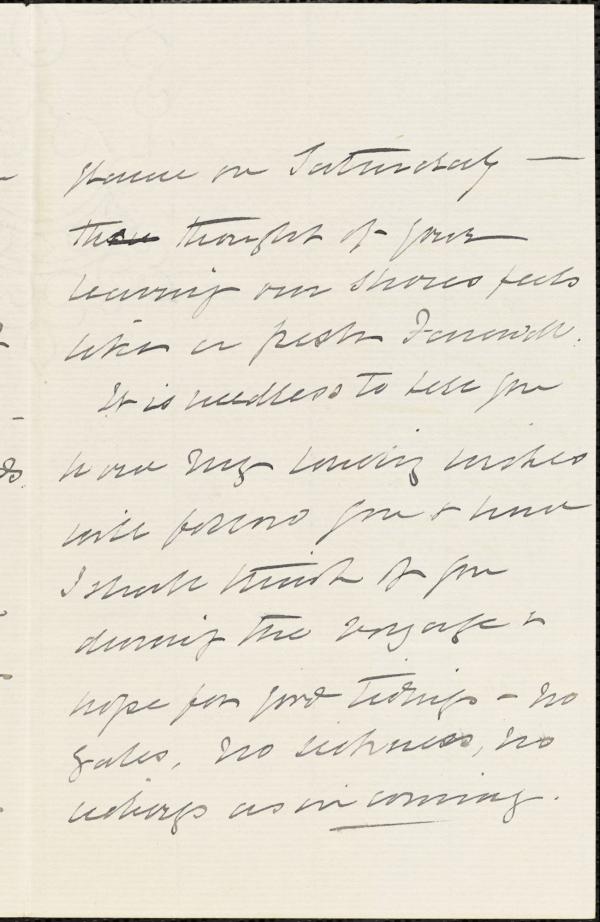 home on Saturday —
the thought of your
leaving our shores feels
like a fresh Farewell.
It is needless to tell you
how my loving wishes
will follow you & how
I shall think of you
during the voyage &
hope for good tidings – no
gales, no sickness, no
as in coming.